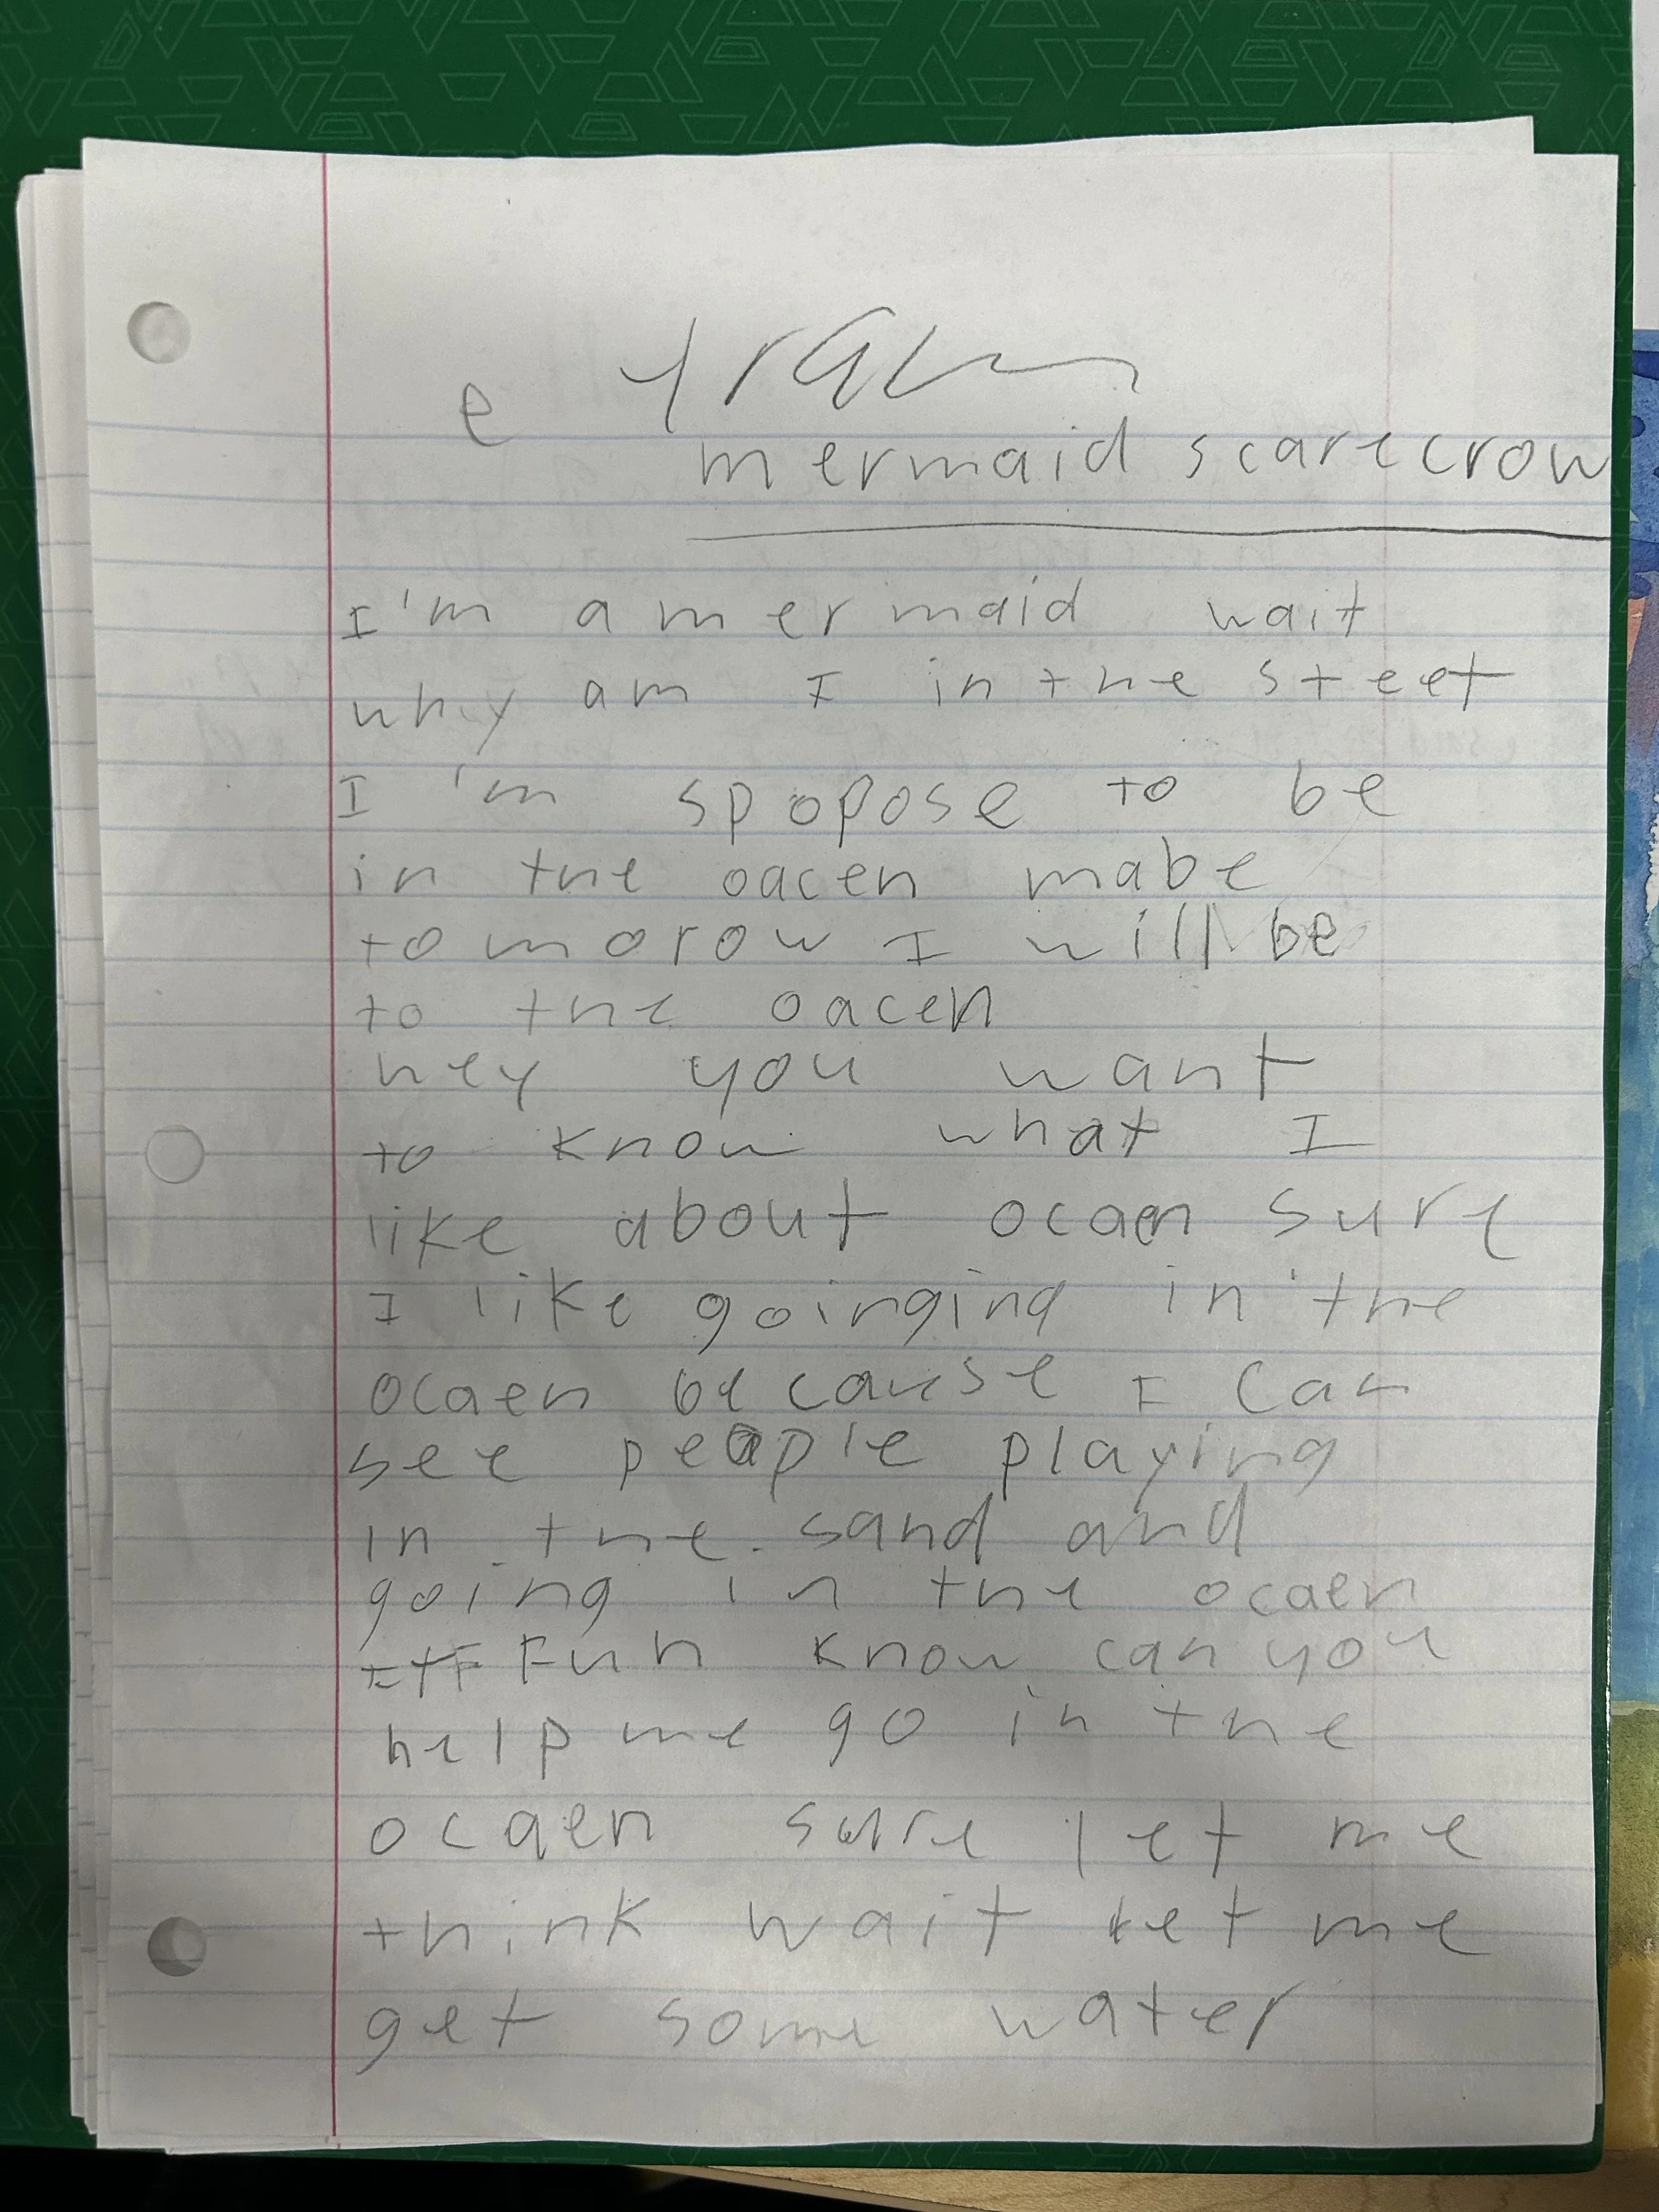 e
mermaid scarecrow
I'm a mermaid wait
why am I in the steet
I'm spopose to be
in the oacen mabe
tomorow I will be
to the oacen
hey you want
to know what I
like about ocaen sure
I like goinging in the
ocaen because I can
see people playing
in the sand and
going in the ocaen
Fun know can you
help me go in the
ocaen sure let me
think wait let me
get some water